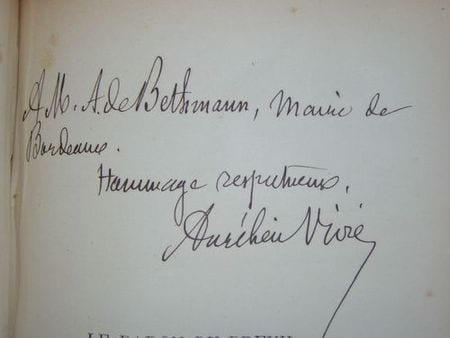 A M. A. de Bethmann, Maire de
Bordeaux.
Hommage respectueux,
Aurélien Vivie
LE BARON DU